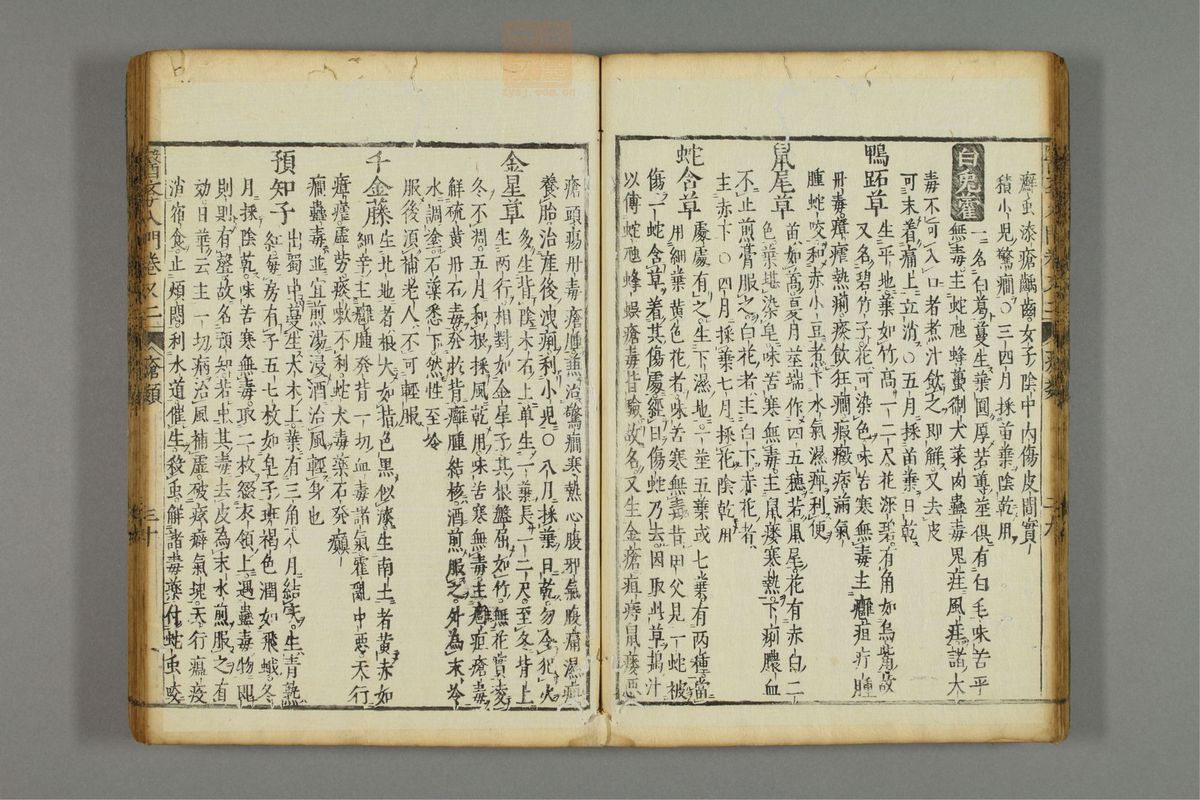 癬虫漆瘡齲齒女子陰中内傷皮間實
積小児驚癇○三四月採苗葉陰乾用
白兔藿
一名白葛蔓生葉圓厚若蓴莖俱有白毛味苦平
無毒主蛇虺蜂蠆猘犬菜肉蠱毒鬼疰風疰諸大
毒不可入口者煮汁飲之即解又去皮
可末着痛上立消○五月採苗葉日乾
鴨跖草
生平地葉如竹高一二尺花深碧有角如鳥觜故
又名碧竹子花可染色味苦寒無毒主癰疽疔腫
丹毒瘴瘧熱痢痰飲狂癇瘕癥痞滿氣
腫蛇咬和赤小豆煮下水氣濕痹利便
鼠尾草
苗如蒿夏月莖端作四五穗若鼠尾花有赤白二
色葉堪染皂味苦寒無毒主鼠瘻寒熱下痢膿血
不止煎膏服之白花者主白下赤花者
主赤下○四月採葉七月採花陰乾用
蛇含草
處處有之生下濕地一莖五葉或七葉有兩種當
用細葉黄色花者味苦寒無毒昔田父見一蛇被
傷一蛇含草着其傷處經日傷蛇乃去因取此草搗汁
以傅蛇虺蜂蜈瘡毒皆驗故名又生金瘡疽痔鼠瘻惡
瘡頭瘍丹毒瘡腫兼治驚癇寒熱心腹邪氣腹痛濕痹
養胎治産後洩痢利小児○八月採葉日乾勿令犯火
金星草
多生背陰木石上單生一葉長一二尺至冬背上
生兩行相對如金星子其根盤屈如竹無花實凌
冬不凋五月和根採風乾用味苦寒無毒主癰疽瘡毒
解硫黄丹石毒発於背癰腫結核酒煎服之外為末冷
水調塗石藥悉下然性至冷
服後須補老人不可輕服
千金藤
生北地者根大如指色黒似漆生南土者黄赤如
細辛主癰腫発背一切血毒諸氣霍亂中惡天行
瘴瘧虛勞痰嗽不利蛇犬毒藥石発癲
癇蠱毒並宜煎湯浸酒治風輕身也
預知子
出蜀中蔓生大木上葉有三角八月結實生青熟
紅每房有子五七枚如皂子斑褐色潤如飛蛾冬
月採陰乾味苦寒無毒取二枚綴衣領上遇蠱毒物
則則有聲故名預知若中其毒去皮為末水煎服之有
効日華云主一切病治風補虛破痃癖氣塊天行瘟疫
消宿食止煩悶利水道催生殺虫解諸毒藥付蛇虫咬
醫學入門卷又二
瘡類
三十